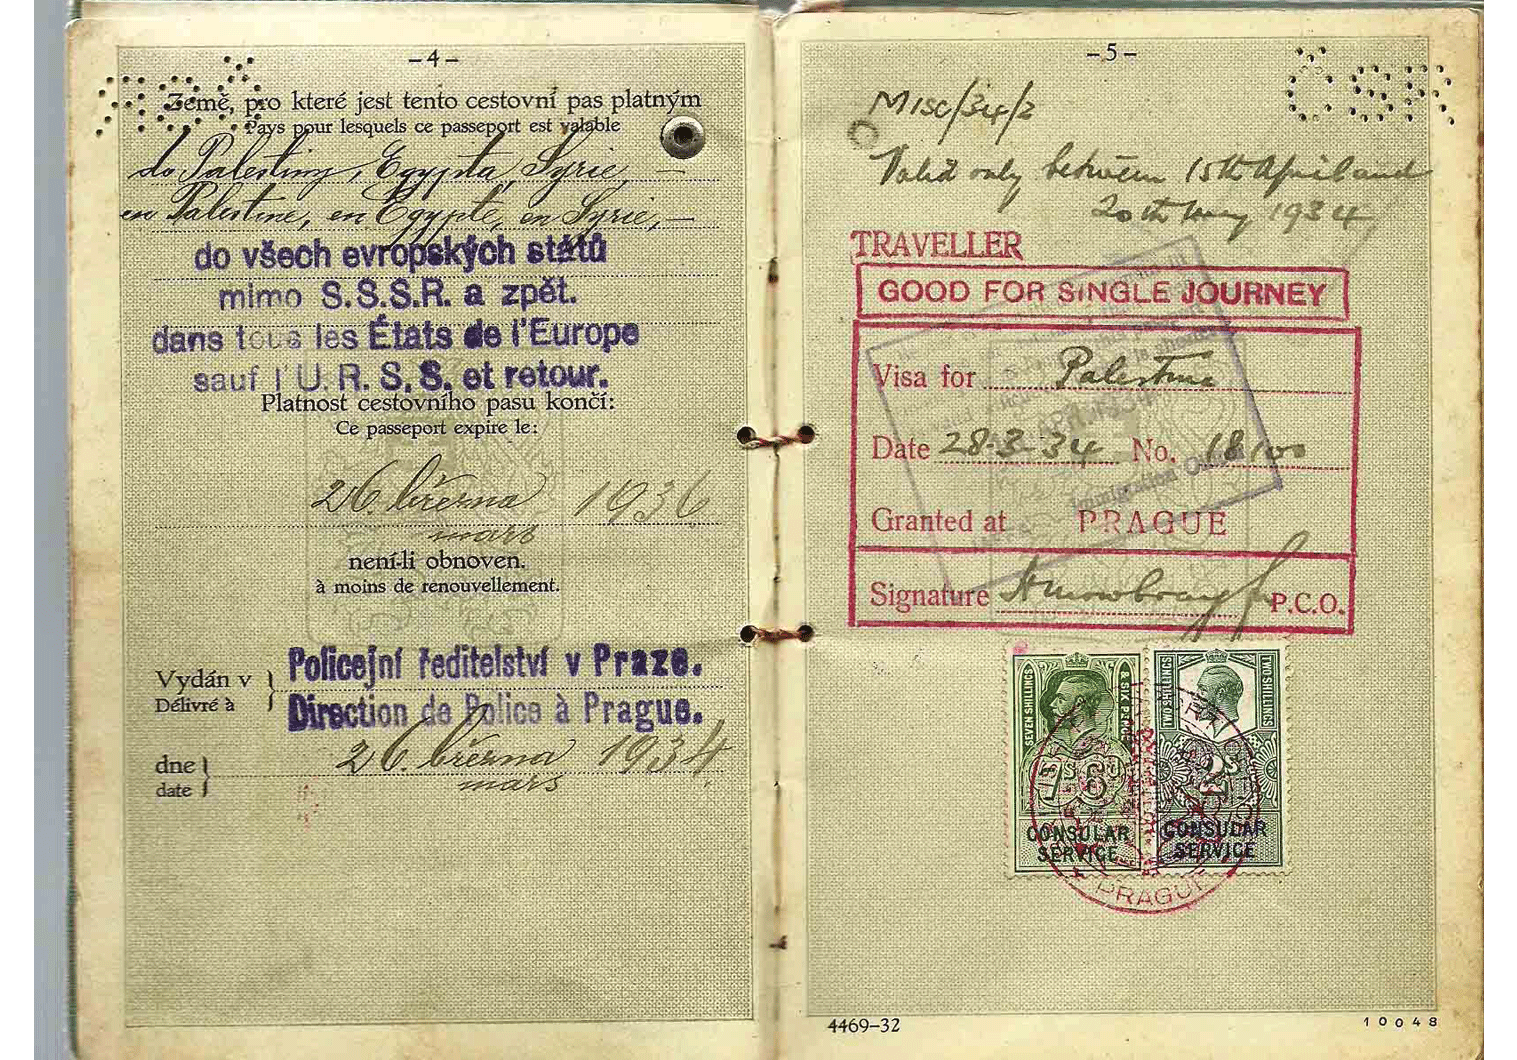 -4-
Země, pro které jest tento cestovní pas platným
Pays pour lesquels ce passeport est valable
do Palestiny, Egypta, Syrie, —
en Palestine, en Égypte, en Syrie, —
do všech evropských států
mimo S.S.S.R. a zpět.
dans tous les États de l'Europe
sauf l'U.R.S.S. et retour.
Platnost cestovního pasu končí:
Ce passeport expire le:
26. března 1936
mars
není-li obnoven.
à moins de renouvellement.
Vydán v
Délivré à
Policejní ředitelství v Praze.
Direction de Police à Prague.
dne
date
26. března 1934
mars
-5-
ČSR
Misc/34/2
Valid only between 15th April and
20th May 1934
TRAVELLER
GOOD FOR SINGLE JOURNEY
Visa for Palestine
Date 28-3-34 No. 18100
Granted at PRAGUE
Signature P.C.O.
APR. 1934
Immigration
SEVEN SHILLINGS & SIX PENCE
7S 6D
CONSULAR
SERVICE
TWO SHILLINGS TWO SHILLINGS
2S
CONSULAR
SERVICE
PRAGUE
4469-32
10048